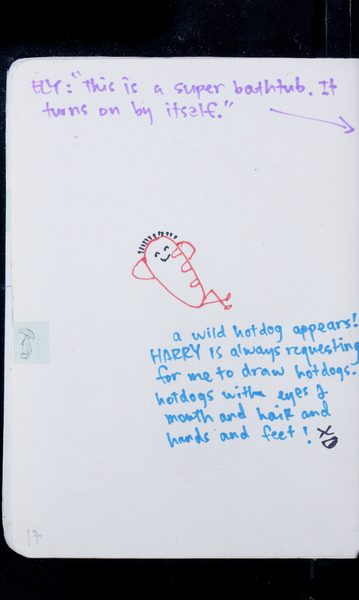 ELY: "This is a super bathtub. It
turns on by itself."
a wild hotdog appears!
HARRY is always requesting
for me to draw hotdogs.
hotdogs with eyes &
mouth and hair and
hands and feet! XD
17